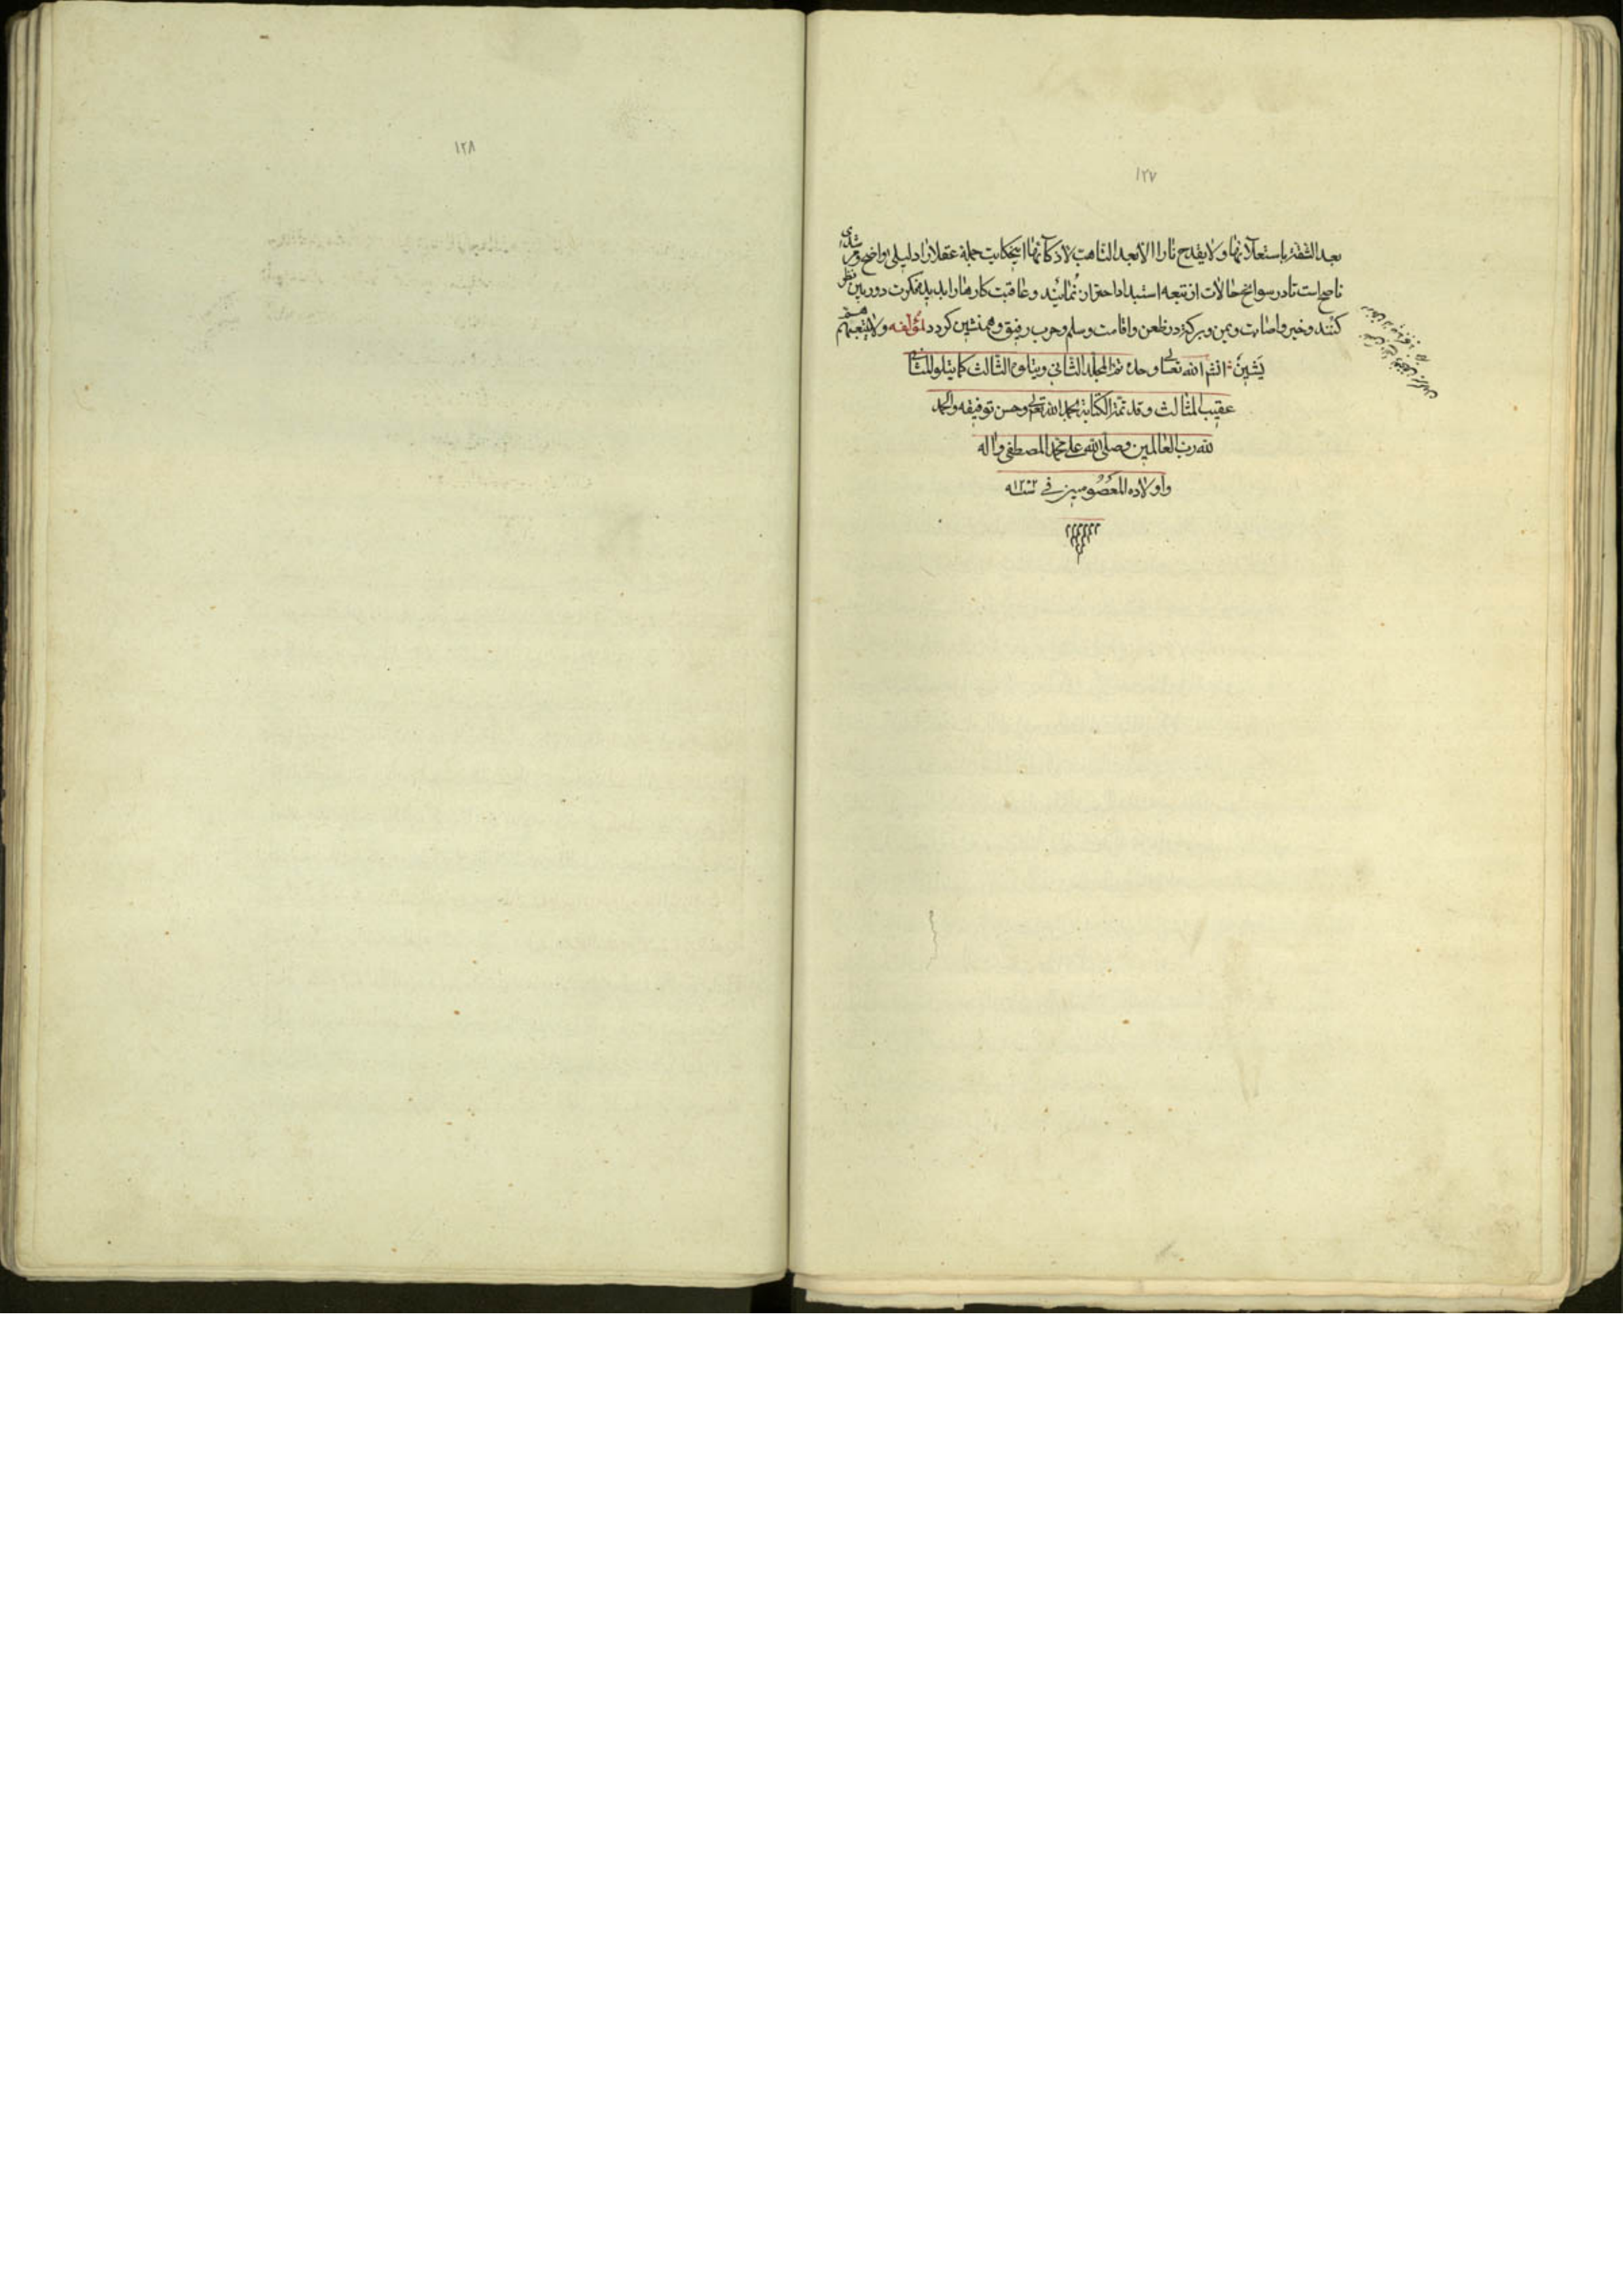 ١٢٧
بعد الثقة باستعلائها ولا یقدح نارا الا بعد التاهب لاذکائها اینحکایت جمله عقلا را دلیلی واضح و مرشدی
ناصح است تا در سوانح حالات از تبعه استبداد احتراز نمایند و عاقبت کارها را بدیده فکرت دوربین نظر
کنند و خیر و اصابت و یمن و برکة در ظعن و اقامت و سلم و حرب رفیق و همنشین کردد لمؤلفه ولا
یشین اتم الله تعالی وحده تم المجلد الثانی ویتلوه الثالث کما یتلو المثانی
عقیب المثالث وقد تمت الکتابة بحمد الله تعالی وحسن توفیقه والحمد
لله رب العالمین وصلی الله علی محمد المصطفی واله
واولاده المعصومین فی سنه
١٢٨